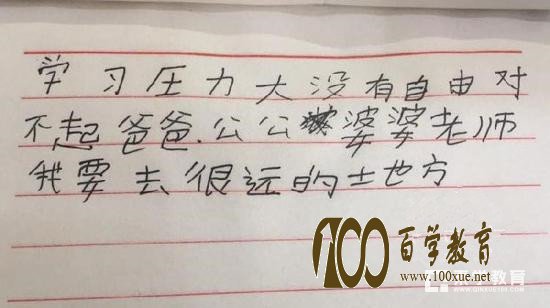 学习压力大没有自由对
不起爸爸.公公婆婆老师
我要去很远的土也方
100 百学教育
www.100xue.net